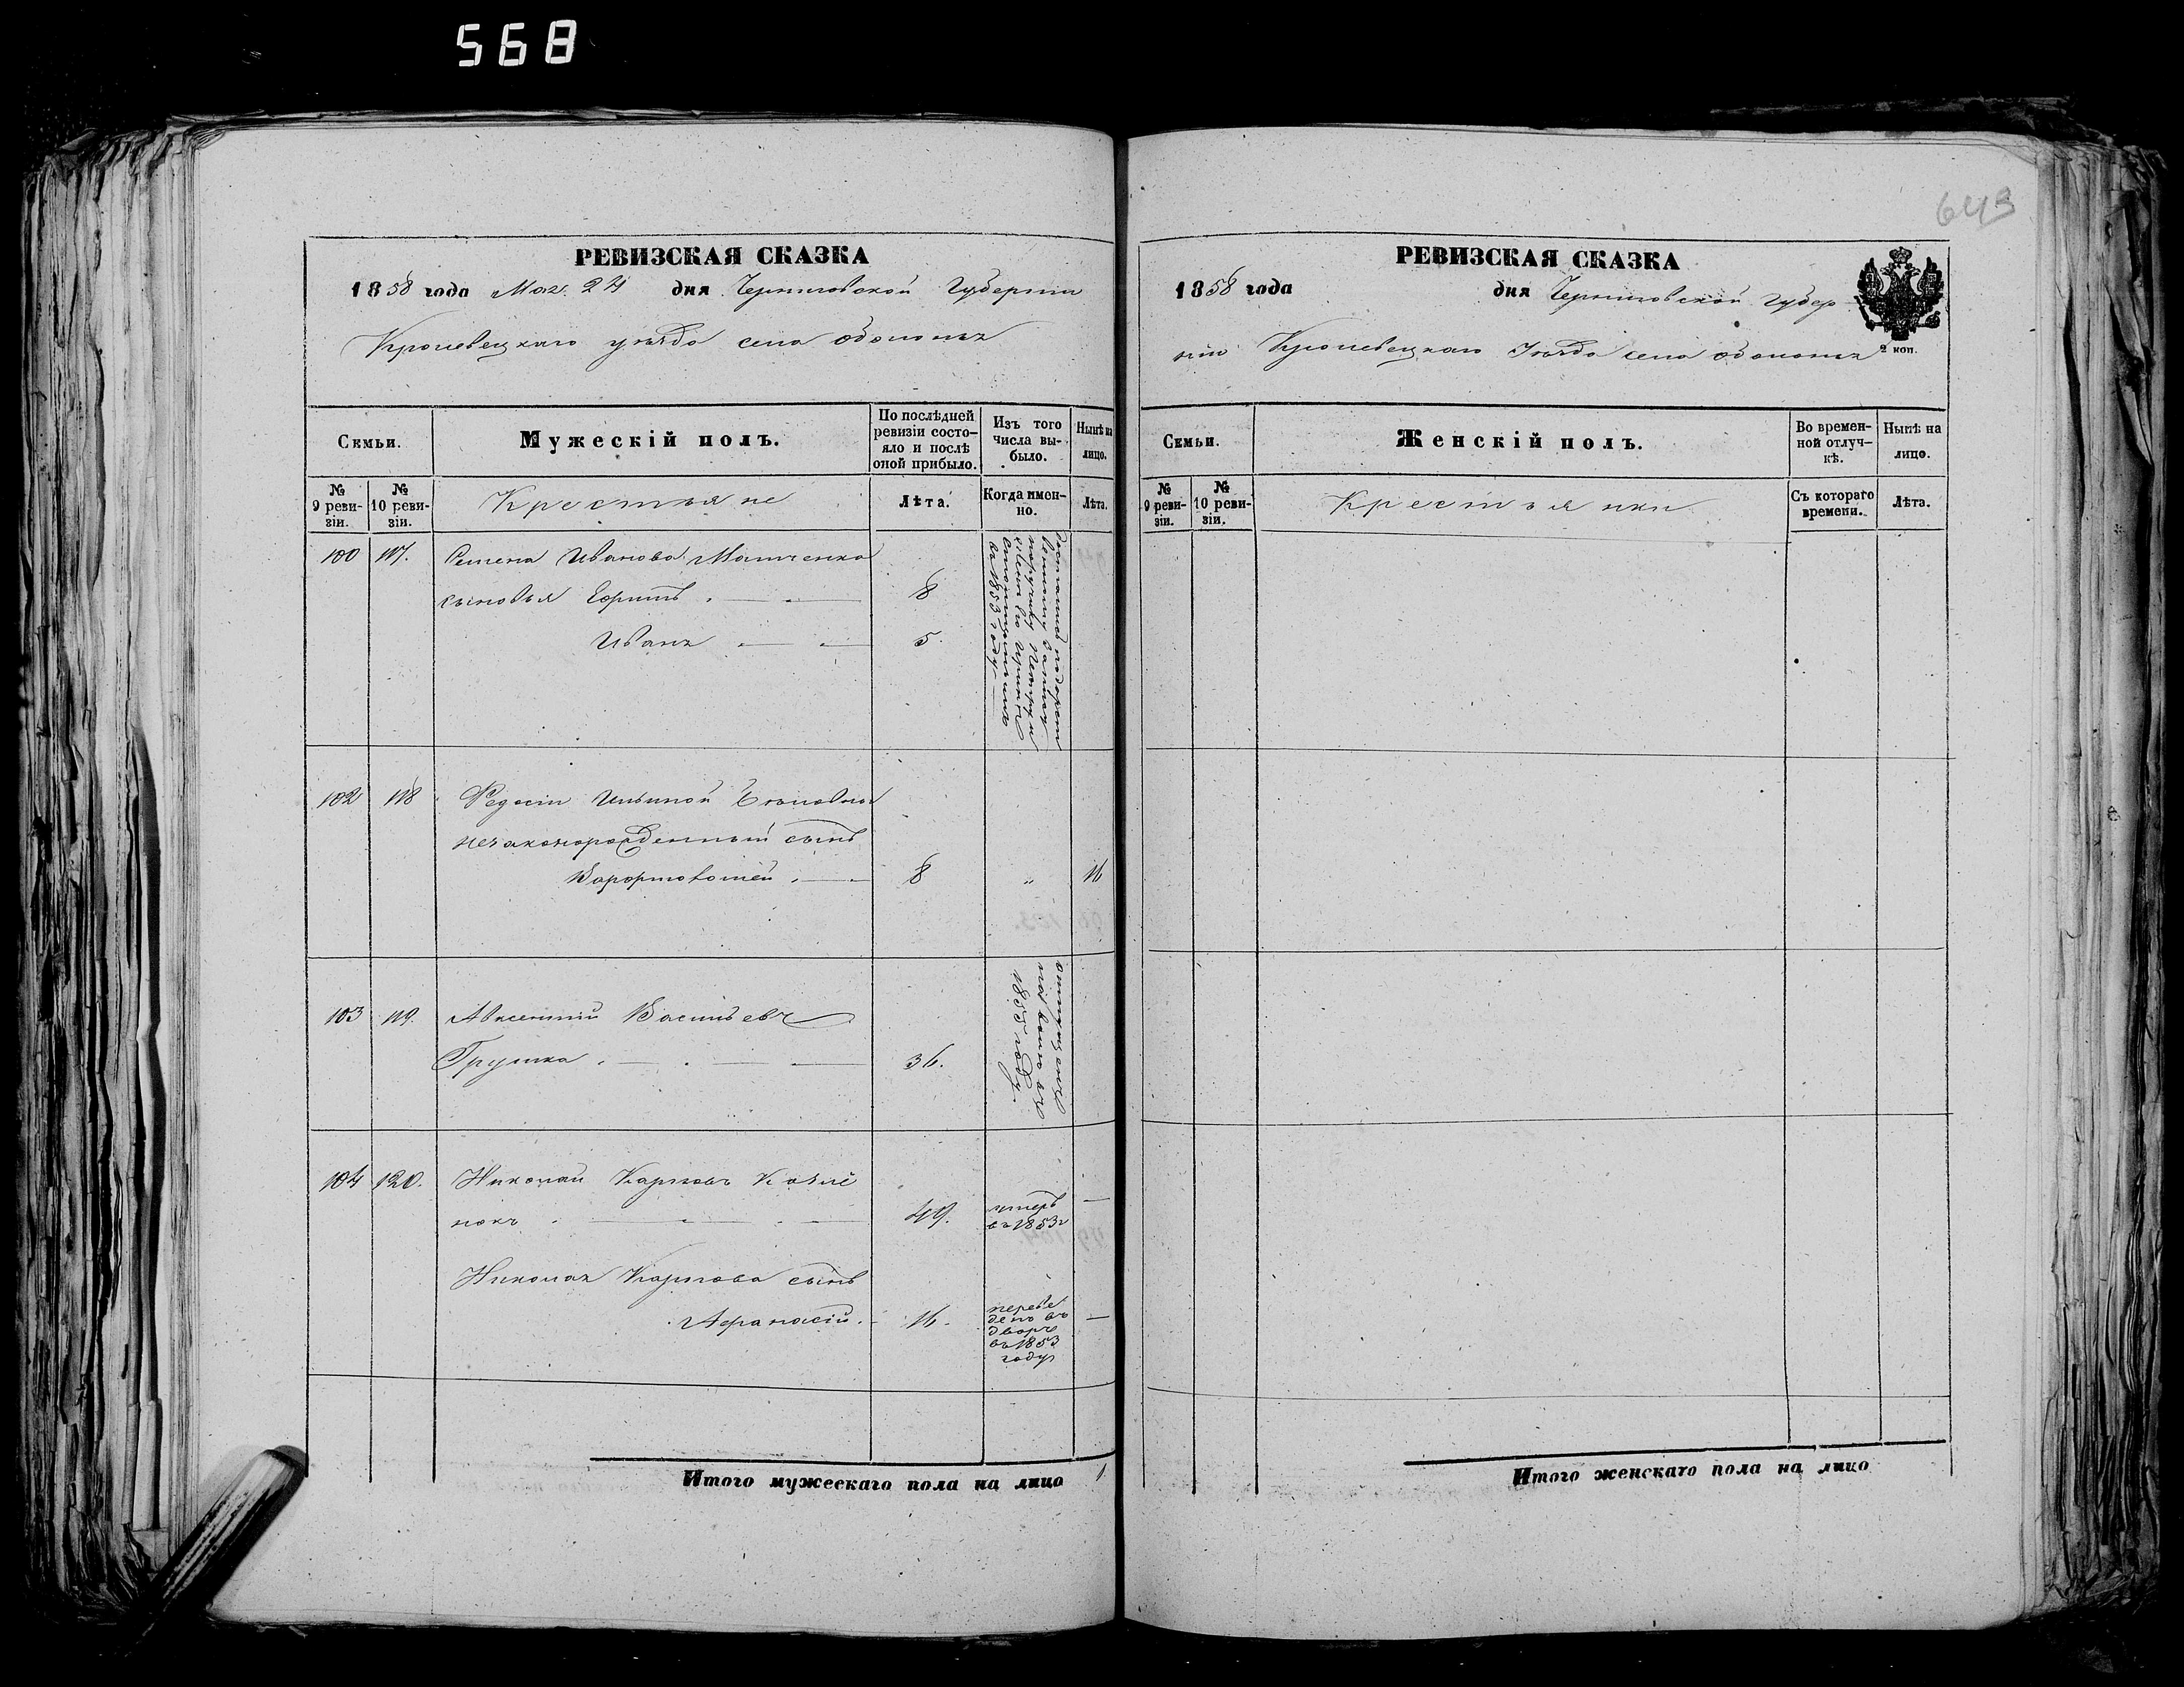 568
643
РЕВИЗСКАЯ СКАЗКА
1858 года Мая 24 дня Черниговской Губернии
Кролевецкаго уѣзда села Оболонья
Семьи.
Мужескій полъ.
По послѣдней ревизіи состояло и послѣ оной прибыло.
Изъ того числа выбыло.
Нынѣ на лицо.
№ 9 ревизіи.
№ 10 ревизіи.
Крестьяне
Лѣта.
Когда именно.
Лѣта.
100 117. Семена Иванова
сыновья Ефимъ 8
Иванъ 5.
въ 1853 году
102 118 Федосіи Ильиной
незаконорожденный сынъ
Варфоломей 8 " 16
103 119. Авксентій Васильевъ
Грушка 36.
отпущенъ
на волю въ
1855 году.
104 120. Николай Карповъ Козле
нокъ 49. умеръ
въ 1853 г
Николая Карпова сынъ
Афанасій 16. переве
денъ во
дворъ
въ 1853
году
Итого мужескаго пола на лицо 1
РЕВИЗСКАЯ СКАЗКА
1858 года дня Черниговской Губер
ніи Кролевецкаго Уѣзда села Оболонья
2 коп.
Семьи.
Женскій полъ.
Во временной отлучкѣ.
Нынѣ на лицо.
№ 9 ревизіи.
№ 10 ревизіи.
Крестьянки
Съ котораго времени.
Лѣта.
Итого женскаго пола на лицо